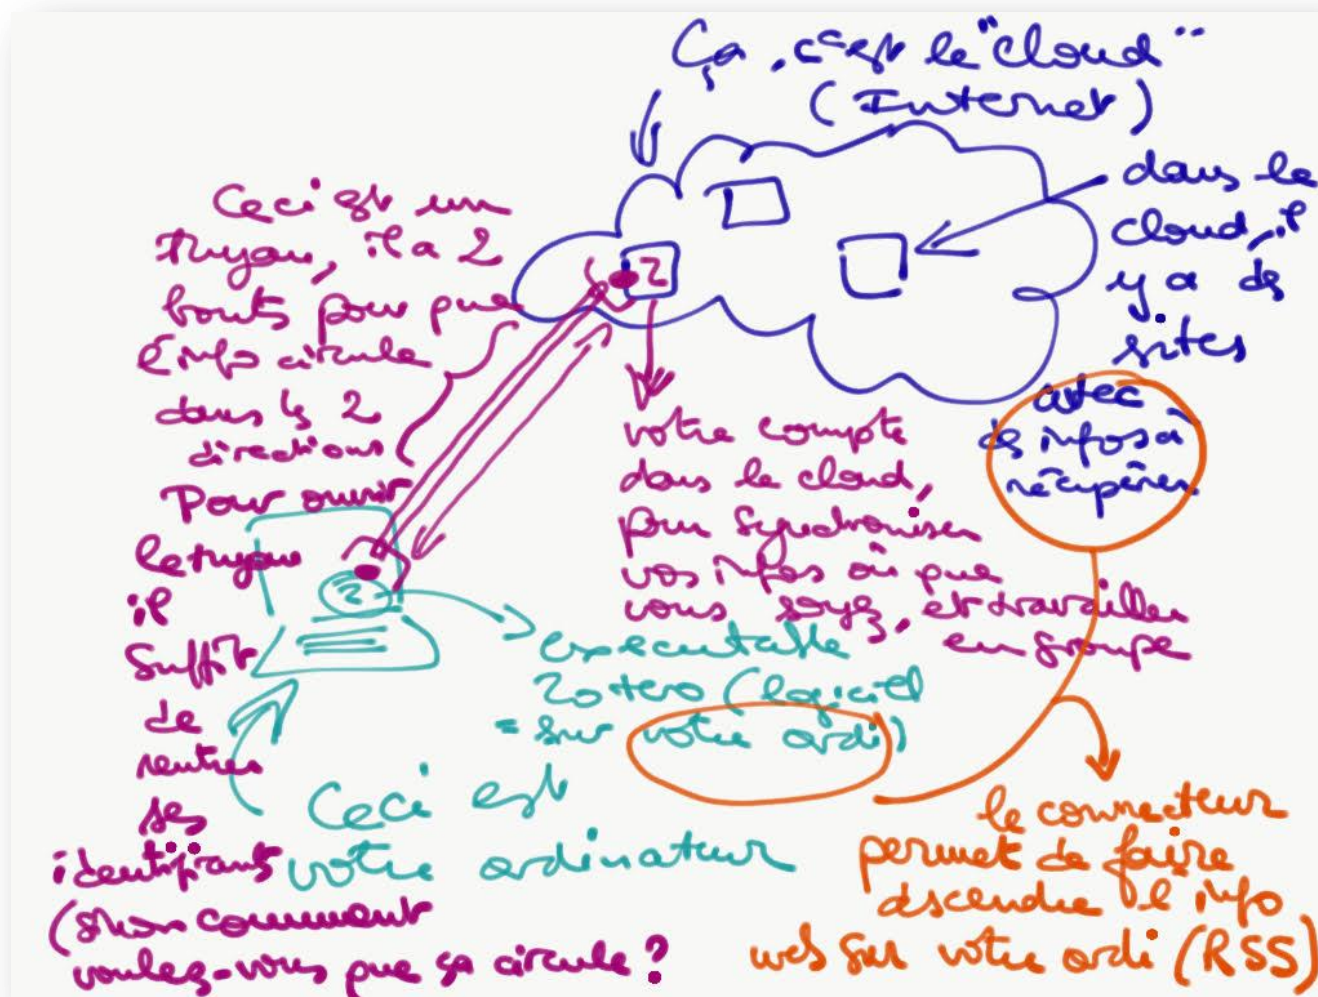 Ça, c'est le "cloud"
(Internet)
dans le
cloud, il
y a des
sites
avec
des infos à
récupérer
Ceci est un
tuyau, il a 2
bouts pour que
l'info circule
dans les 2
directions
Pour ouvrir
le tuyau
il
suffit
de
rentrer
ses
identifiants
(sinon comment
voulez-vous que ça circule ?
Z
votre compte
dans le cloud,
pour synchroniser
vos infos où que
vous soyez, et travailler
en groupe
Z
executable
Zotero (logiciel
= sur votre ordi)
Ceci est
votre ordinateur
le connecteur
permet de faire
descendre l'info
web sur votre ordi (RSS)